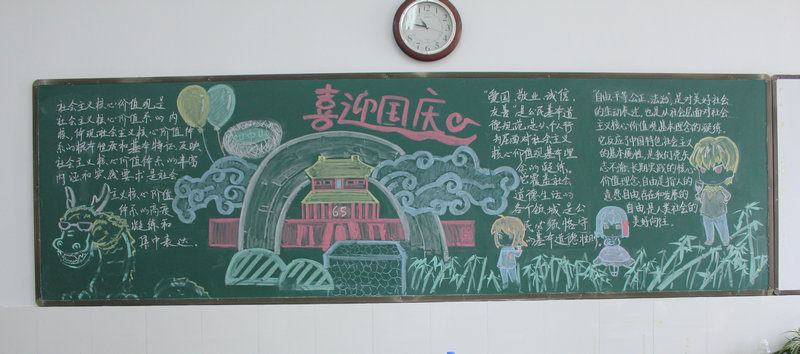 喜迎国庆
社会主义核心价值观是
社会主义核心价值体系的内
核,体现社会主义核心价值体
系的根本性质和基本特征,反映
社会主义核心价值体系的丰富
内涵和实践要求,是社会
主义核心价值
体系的高度
凝练和
集中表达
65
"爱国、敬业、诚信、
友善"是公民基本道
德规范,是从个人行
为层面对社会主义
核心价值观基本理
念的凝练。
它覆盖社会
道德生活的
各个领域,是公
民必须恪守
的基本道德准则
自由、平等、公正、法治,是对美好社会
的生动表述,也是从社会层面对社会
主义核心价值观基本理念的凝练。
它反映了中国特色社会主义
的基本属性,是我们党矢
志不渝、长期实践的核心
价值理念。自由是指人的
意志自由、存在和发展的
自由,是人类社会的
美好向往。